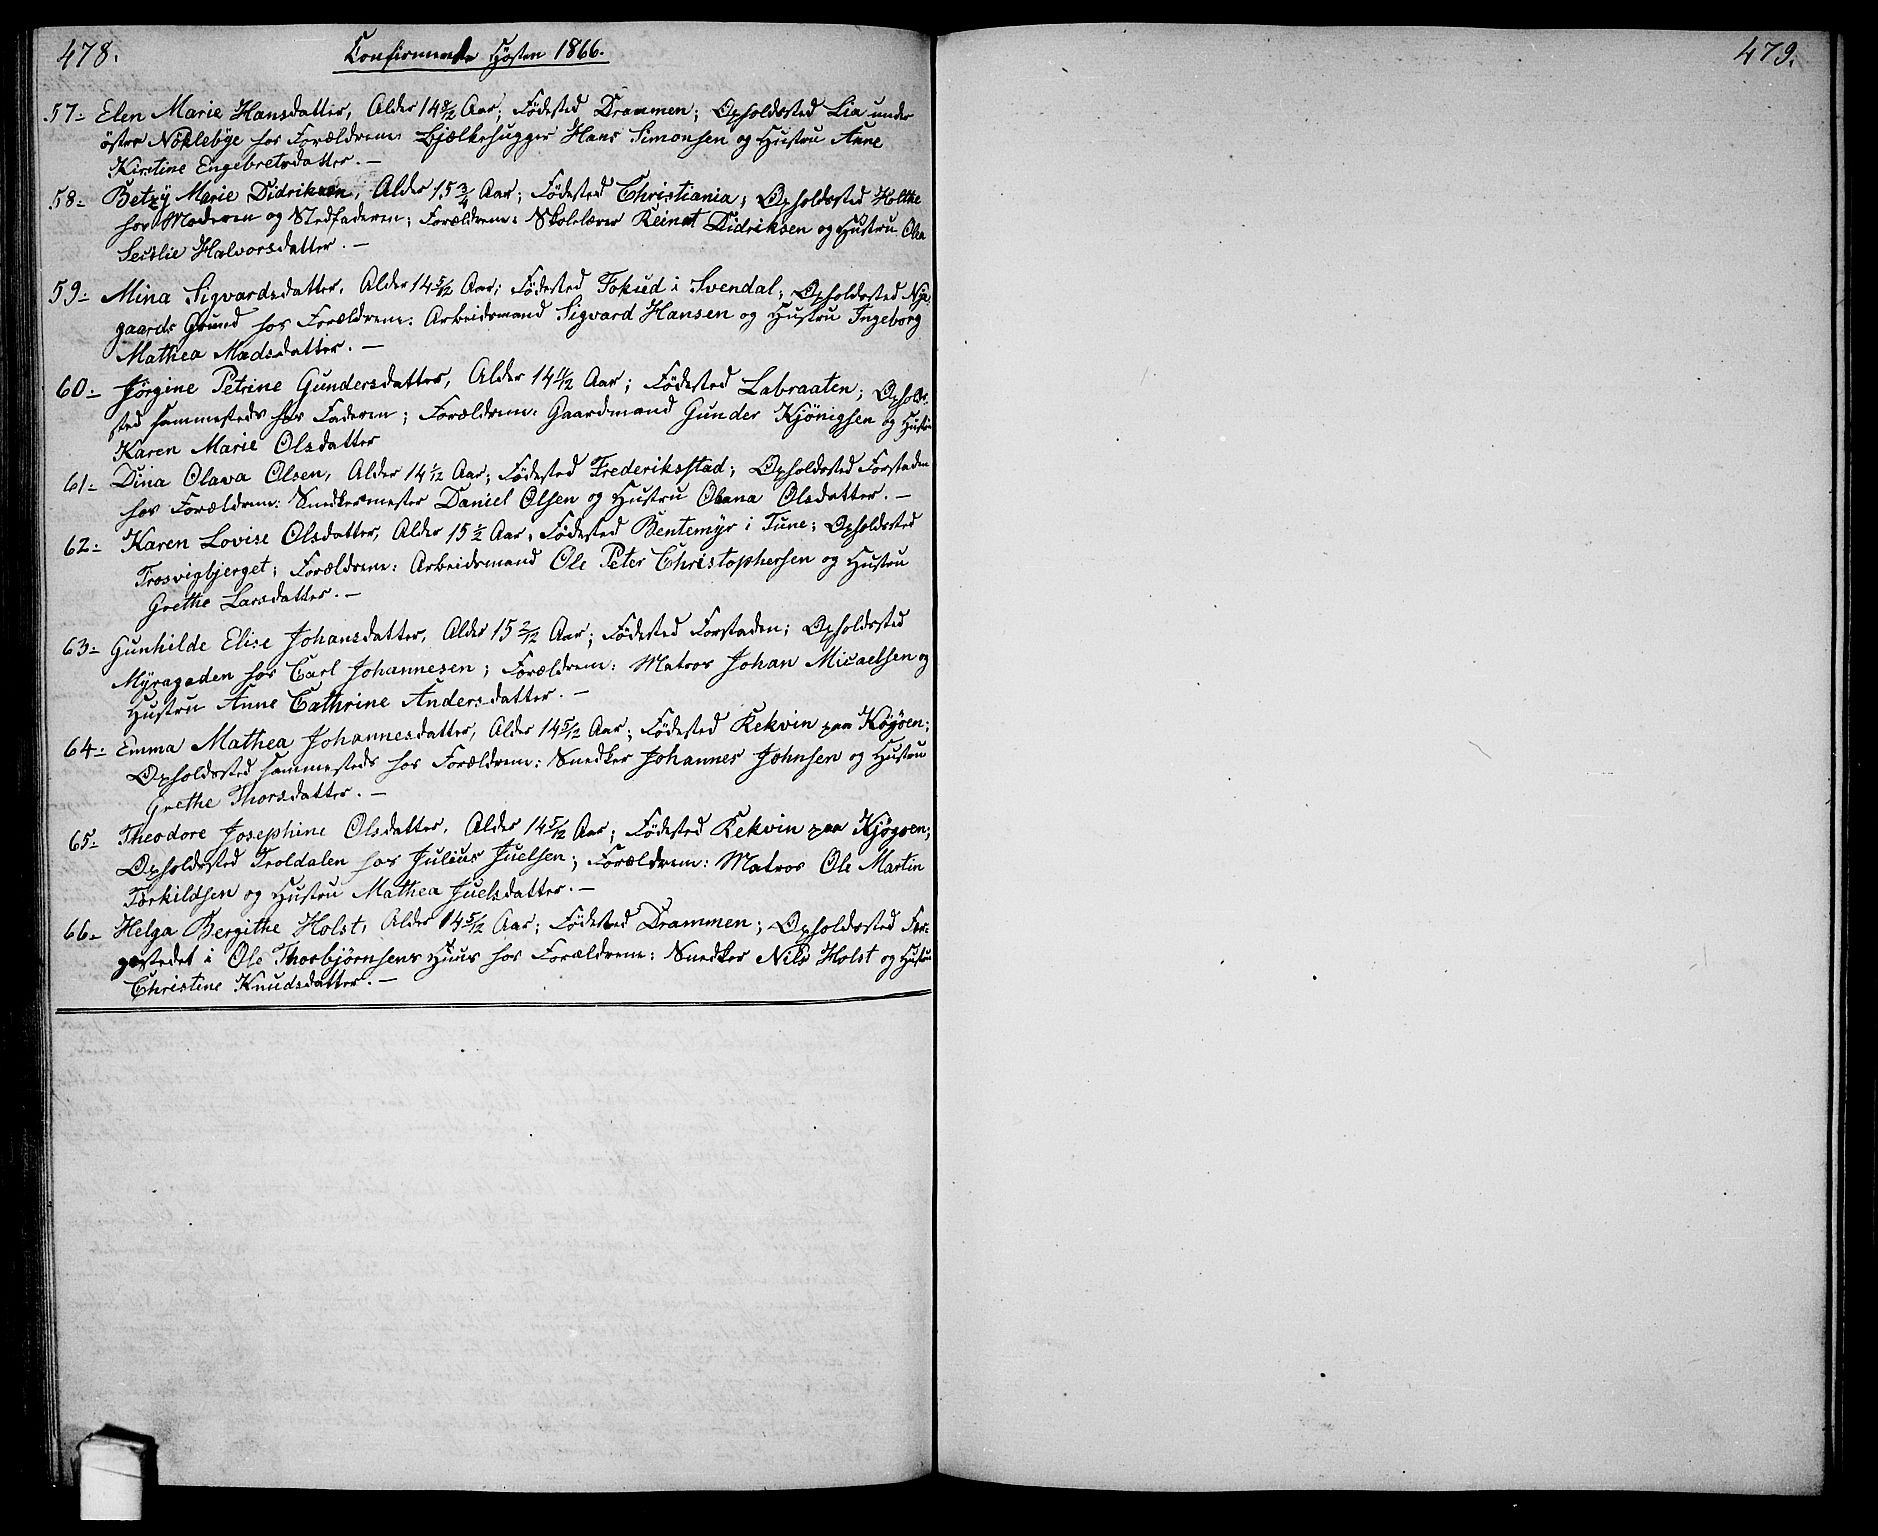 478.
Confirmerede Høsten 1866.
57- Elen Marie Hansdatter, Alder 14 8/12 Aar; Fødested Drammen; Opholdssted Lia under
östre Nöklebye hos Forældrene: Bjælkehugger Hans Simonsen og Hustru Anne
Kirstine Engebretsdatter. —
58- Betzy Marie Didriksen, Alder 15 3/4 Aar; Födested Christiania; Opholdssted Holtke
hos Moderen og Stedfaderen; Forældrene: Skolelærer Reinot Didriksen og Hustru Olea
Secilie Halvorsdatter. —
59- Mina Sigvardsdatter, Alder 14 5/12 Aar; Födested Fokud i Svendal; Opholdssted Nye-
gaards Grund hos Forældrene: Arbeidsmand Sigvard Hansen og Hustru Ingeborg
Mathea Madsdatter. —
60- Jörgine Petrine Gundersdatter, Alder 14 11/12 Aar; Födested Labraaten; Opholds-
sted sammesteds hos Faderen; Forældrene: Gaardmand Gunder Kjönigsen og Hustru
Karen Marie Olsdatter
61- Dina Olava Olsen, Alder 14 1/12 Aar; Födested Frederiksstad; Opholdssted Forstaden
hos Forældrene: Snedkermester Daniel Olsen og Hustru Oleana Olsdatter. —
62- Karen Lovise Olsdatter, Alder 15 1/2 Aar, Födested Bentemyr i Tune; Opholdssted
Trosvigbjerget; Forældrene: Arbeidsmand Ole Peter Christophersen og Hustru
Grethe Larsdatter. —
63- Gunhilde Elise Johansdatter, Alder 15 2/12 Aar; Födested Forstaden; Opholdssted
Myragaden hos Carl Johannesen; Forældrene: Matros Johan Micaelsen og
Hustru Anne Cathrine Andersdatter. —
64- Emma Mathea Johannesdatter, Alder 14 5/12 Aar; Födested Rekvin paa Køgöen;
Opholdssted sammesteds hos Forældrene: Snedker Johannes Johnsen og Hustru
Grethe Thorsdatter. —
65- Theodore Josephine Olsdatter, Alder 14 5/12 Aar; Födested Rekvin paa Kjøgöen;
Opholdssted Troldalen hos Julius Juelsen; Forældrene: Matros Ole Martin
Torkildsen og Hustru Mathea Juelsdatter. —
66- Helga Bergithe Holst, Alder 14 5/12 Aar; Födested Drammen; Opholdssted Fær-
gestedet i Ole Thorbjörnsens Huus hos Forældrene: Snedker Nils Holst og Hustru
Christine Knudsdatter. —
479.